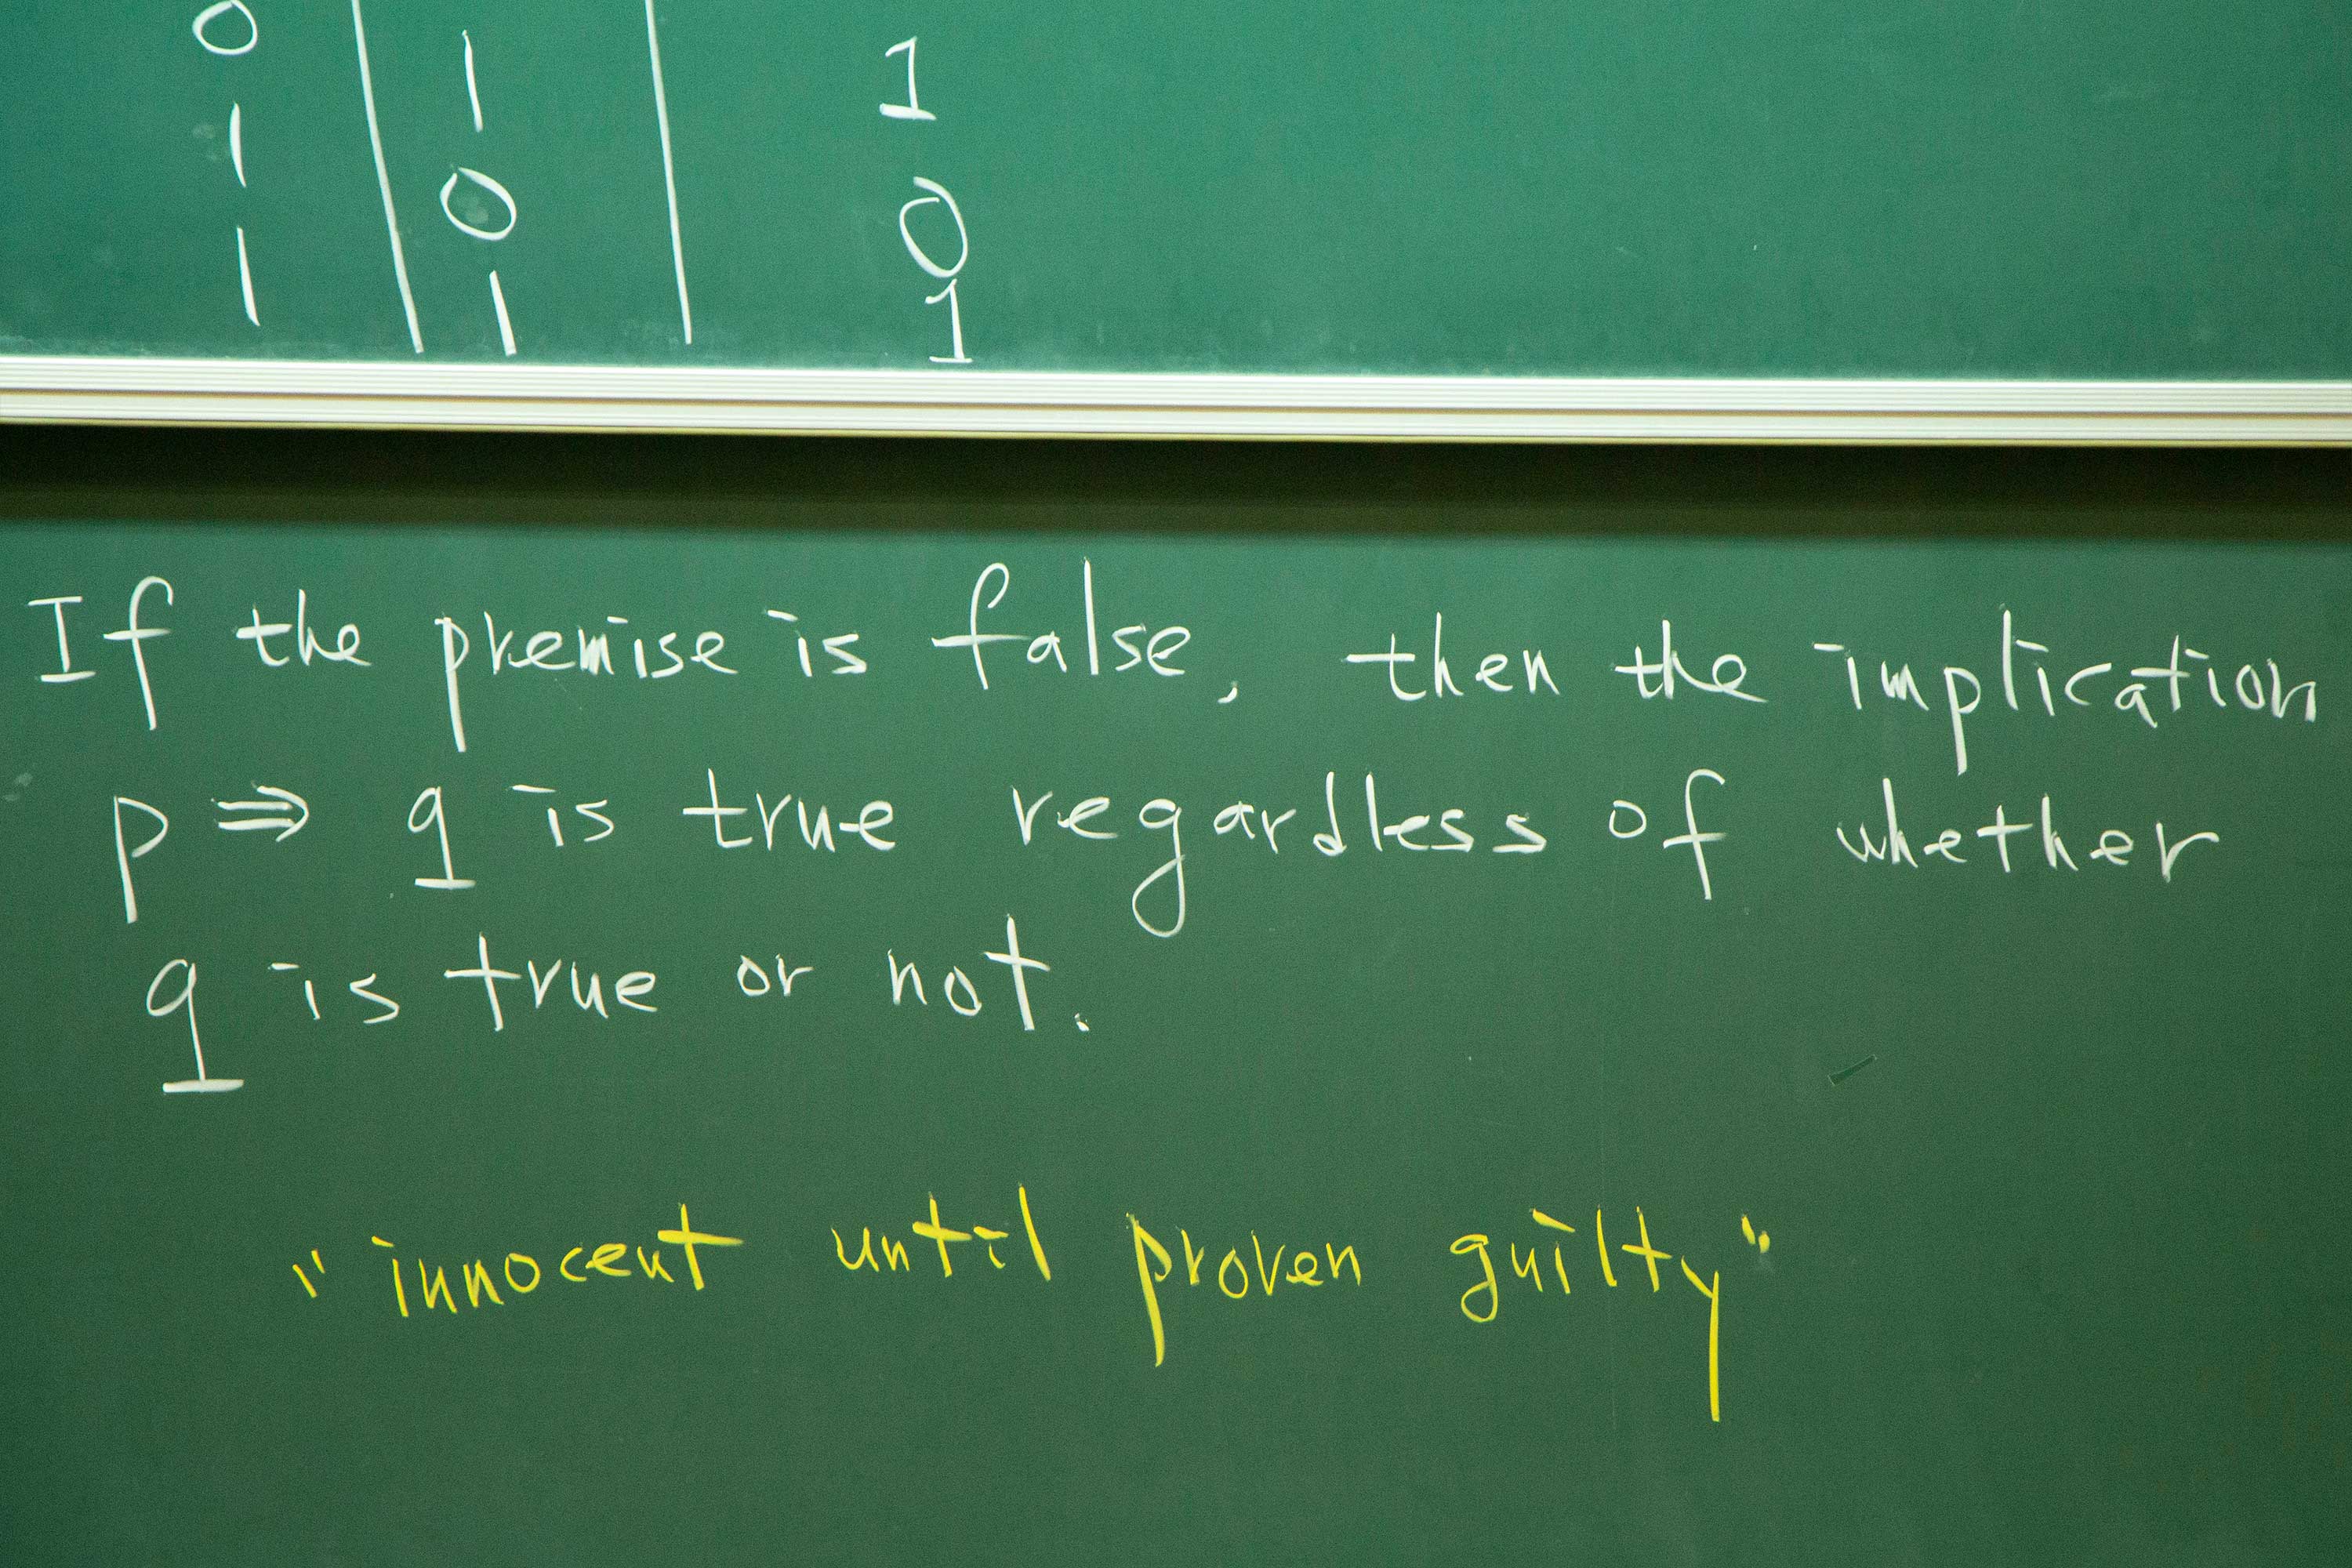 0 1 1
1 0 0
1 1 1
If the premise is false, then the implication
p ⇒ q is true regardless of whether
q is true or not.
"innocent until proven guilty"